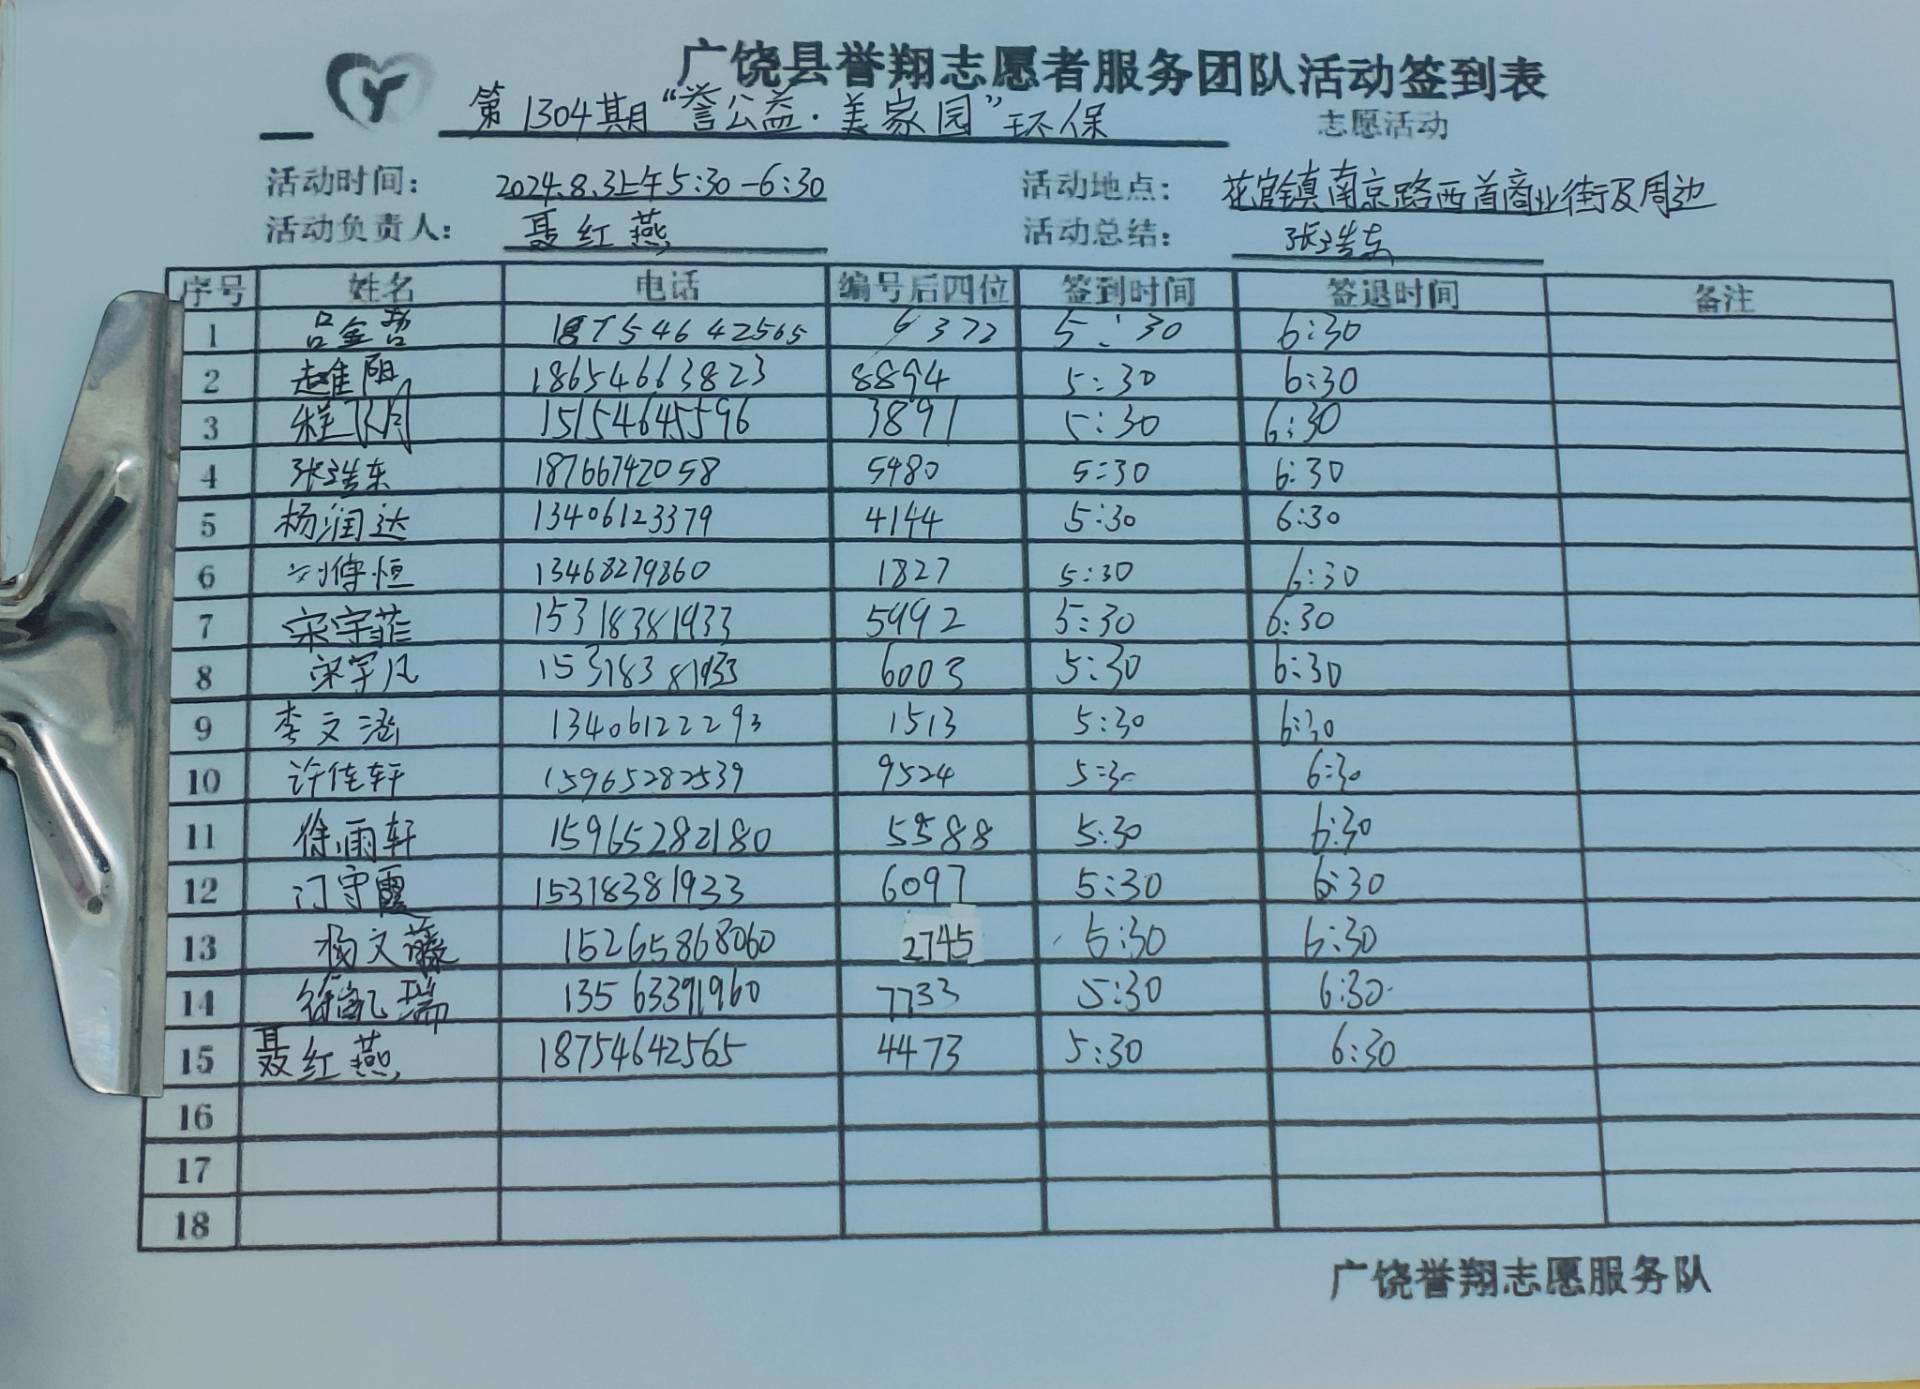 广饶县誉翔志愿者服务团队活动签到表
第1304期“誉公益·美家园”环保 志愿活动
活动时间: 2024.8.3上午5:30-6:30 活动地点: 花官镇南京路西首商业街及周边
活动负责人: 聂红燕 活动总结: 张浩东
序号 姓名 电话 编号后四位 签到时间 签退时间 备注
1 吕金哲 18754642565 6372 5:30 6:30
2 赵淮阳 18654663823 8894 5:30 6:30
3 15154645596 3891 5:30 6:30
4 张浩东 18766742058 5480 5:30 6:30
5 杨润达 13406123379 4144 5:30 6:30
6 刘傳恒 13468279860 1827 5:30 6:30
7 宋宇菲 15318381933 5992 5:30 6:30
8 宋宇凡 15318381933 6003 5:30 6:30
9 李文涵 13406122293 1513 5:30 6:30
10 许佳轩 15965282539 9524 5:30 6:30
11 徐雨轩 15965282180 5588 5:30 6:30
12 门守霞 15318381933 6097 5:30 6:30
13 杨文藤 15265868060 2745 5:30 6:30
14 徐凯瑞 13563391960 7733 5:30 6:30
15 聂红燕 18754642565 4473 5:30 6:30
16
17
18
广饶誉翔志愿服务队